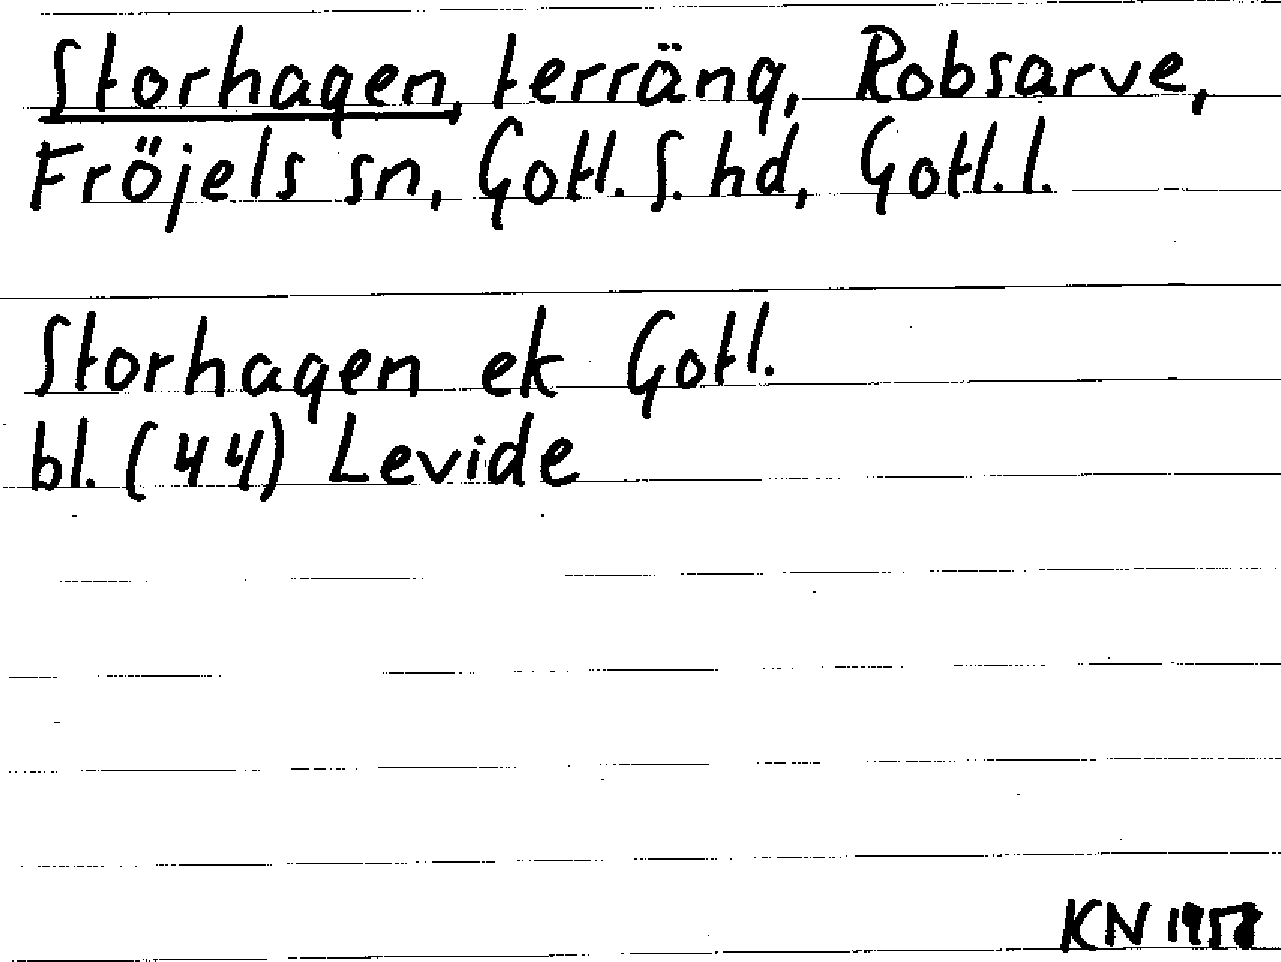 Storhagen, terräng, Robsarve,
Fröjels sn, Gotl. S. hd, Gotl. l.
Storhagen ek Gotl.
bl. (44) Levide
KN